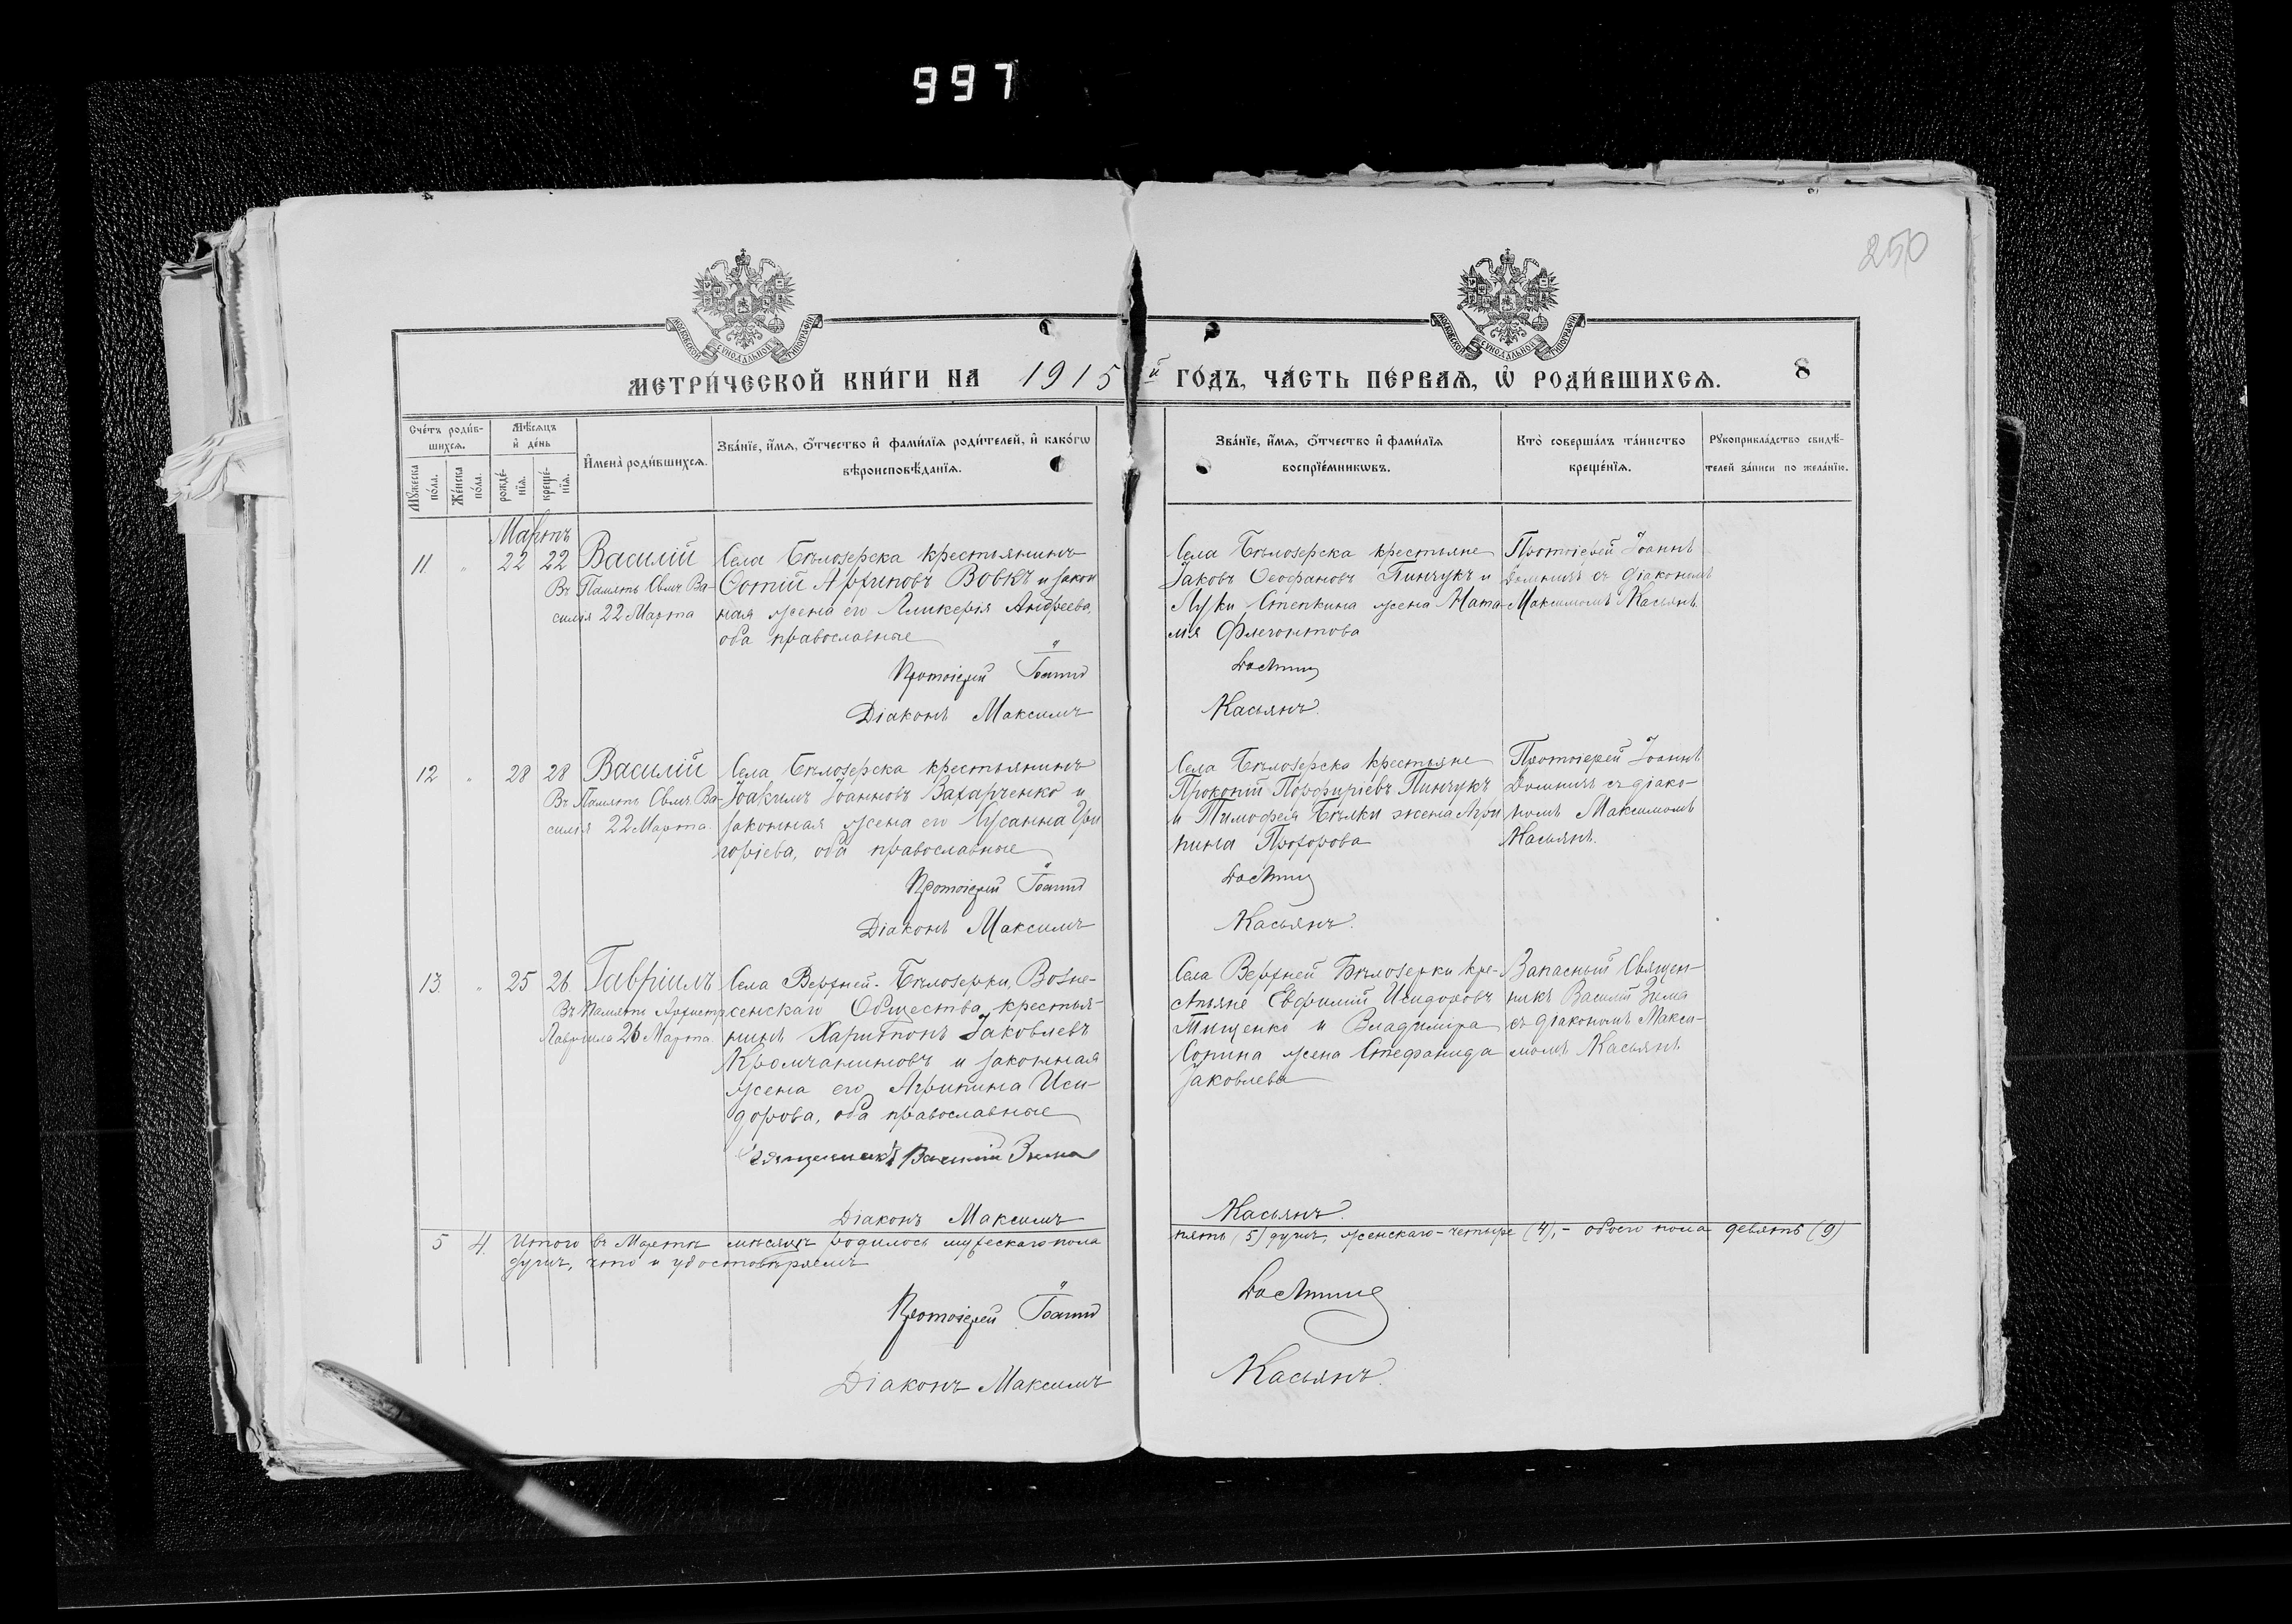 997
250
МОСКОВСКОЙ СѴНОДАЛЬНОЙ ТИПОГРАФІИ
МОСКОВСКОЙ СѴНОДАЛЬНОЙ ТИПОГРАФІИ
МЕТРИ́ЧЕСКОЙ КНИ́ГИ НА 1915 й ГО́ДЪ, ЧА́СТЬ ПЕ́РВАѦ, Ѡ҆ РОДИ́ВШИХСѦ. 8
Сче́тъ роди́в-
шихсѧ.
Мꙋ́жеска
по́ла.
Же́нска
по́ла.
Мѣ́сѧцъ
и҆ де́нь
рожде́-
нїѧ.
креще́-
нїѧ.
И҆мена̀ роди́вшихсѧ.
Зва́нїе, и҆́мѧ, ѻ҆́тчество и҆ фами́лїѧ роди́телей, и҆ како́гѡ
вѣроисповѣ́данїѧ.
Зва́нїе, и҆́мѧ, ѻ҆́тчество и҆ фами́лїѧ
воспрїе́мникѡвъ.
Кто̀ соверша́лъ та́инство
креще́нїѧ.
Рꙋкоприкла́дство свидѣ́-
телей за́писи по жела́нїю.
Мартъ
11 " 22 22 Василій
Въ Память Свмч Ва-
силія 22 Марта
Села Бѣлозерска крестьянинъ
Фотій Архиповъ Вовкъ и закон
ная жена его Гликерія Андреева,
оба православные
Протоіерей Іоаннъ
Діаконъ Максимъ
Села Бѣлозерска крестьяне
Іаковъ Ѳеофановъ Пинчукъ и
Луки Степкина жена Ната
лія Флегонтова
Касьянъ.
Протоіерей Іоаннъ
съ діакономъ
Максимомъ Касьянъ.
12 " 28 28 Василій
Въ Память Свмч Ва-
силія 22 Марта.
Села Бѣлозерска крестьянинъ
Іоакимъ Іоанновъ Захарченко и
законная жена его Сусанна Гри
горіева, оба православные
Протоіерей Іоаннъ
Діаконъ Максимъ
Села Бѣлозерска крестьяне
Прокопій Порфиріевъ Пинчукъ
и Тимофея Бѣлки жена Агри
пина Прохорова
Касьянъ.
Протоіерей Іоаннъ
съ діако-
номъ Максимомъ
Касьянъ.
13. " 25 26. Гавріилъ
Въ Память Архистр
Гавріила 26 Марта.
Села Верхней-Бѣлозерки, Возне-
сенскаго Общества, крестья-
нинъ Харитонъ Іаковлевъ
Кромчаниновъ и законная
жена его Агрипина Иси-
дорова, оба православные
Священникъ Василій Зима
Діаконъ Максимъ
Села Верхней Бѣлозерки кре-
стьяне Евфимій Исидоровъ
Тищенко и Владиміра
Сопина жена Стефанида
Іаковлева
Касьянъ.
Запасный Священ-
никъ Василій Зима
съ діакономъ Макси-
момъ Касьянъ
5 4. Итого въ Мартѣ мѣсяцѣ родилось мужескаго пола пять (5) душъ, женскаго - четыре (4), - обоего пола девять (9)
душъ, что и удостовѣряемъ
Протоіерей Іоаннъ
Діаконъ Максимъ Касьянъ.